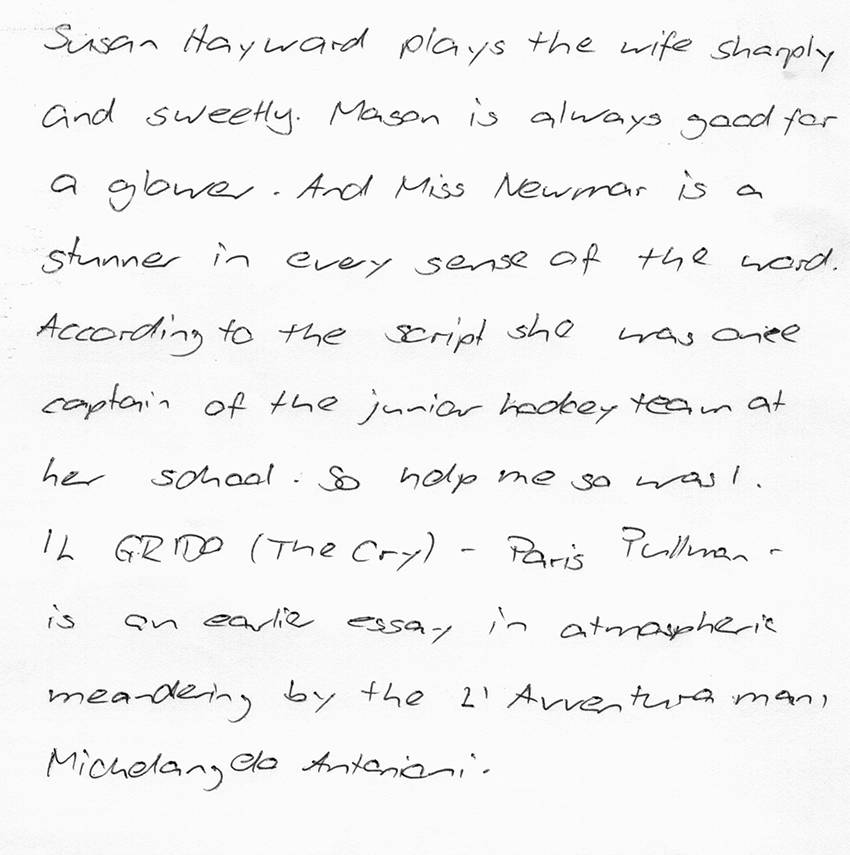 Susan Hayward plays the wife sharply
and sweetly. Mason is always good for
a glower. And Miss Newmar is a
stunner in every sense of the word.
According to the script she was once
captain of the junior hockey team at
her school. So help me so was I.
IL GRIDO (The Cry) - Paris Pullman -
is an earlie essay in atmospheric
meandering by the L' Avventura man,
Michelangelo Antonioni.